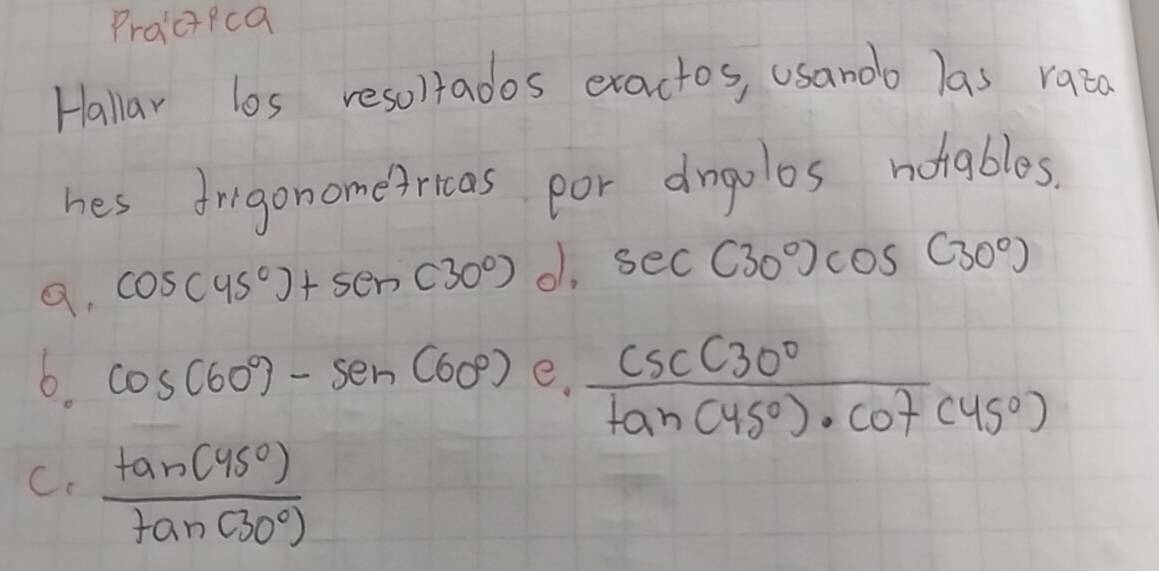 Práctica
Hallar los resultados exactos, usando las razo
nes trigonométricas por ángulos notables.
a. cos(45°) + sen(30°) d. sec(30°)cos(30°)
b. cos(60°) - sen(60°) e. csc(30°
tan(45°) . cot(45°)
c. tan(45°)
tan(30°)